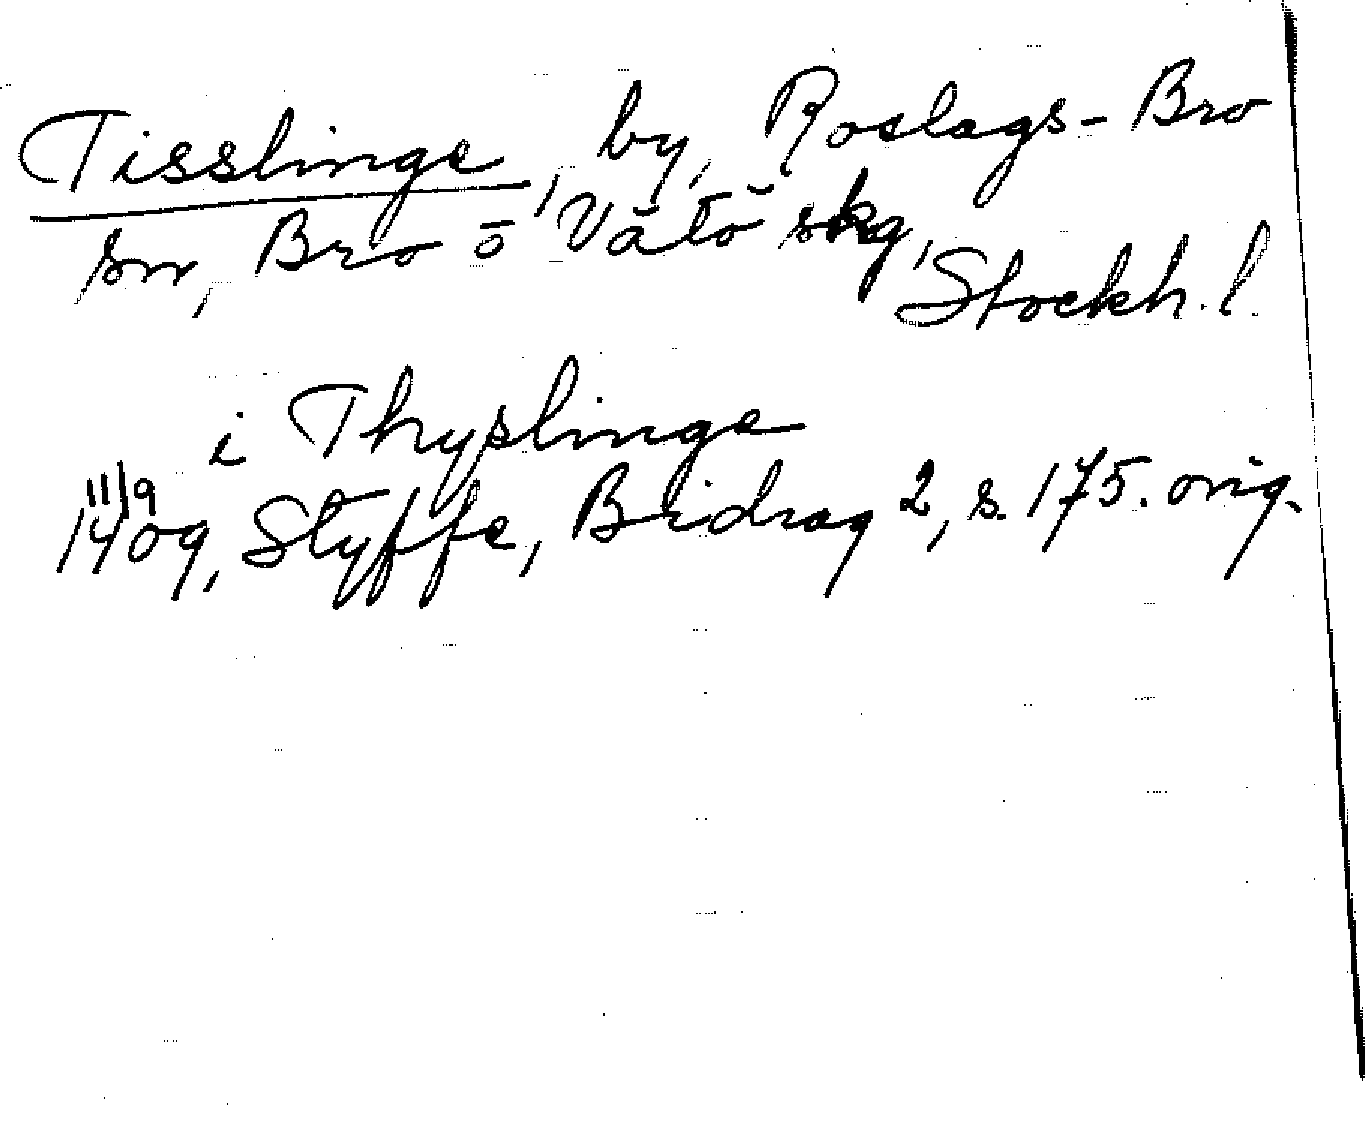 Tisslinge, by, Roslags-Bro
sn, Bro o Vätö skg,
Stockh. l.
i Thyslinge
11/9
1409, Styffe, Bidrag 2, s. 175. orig.